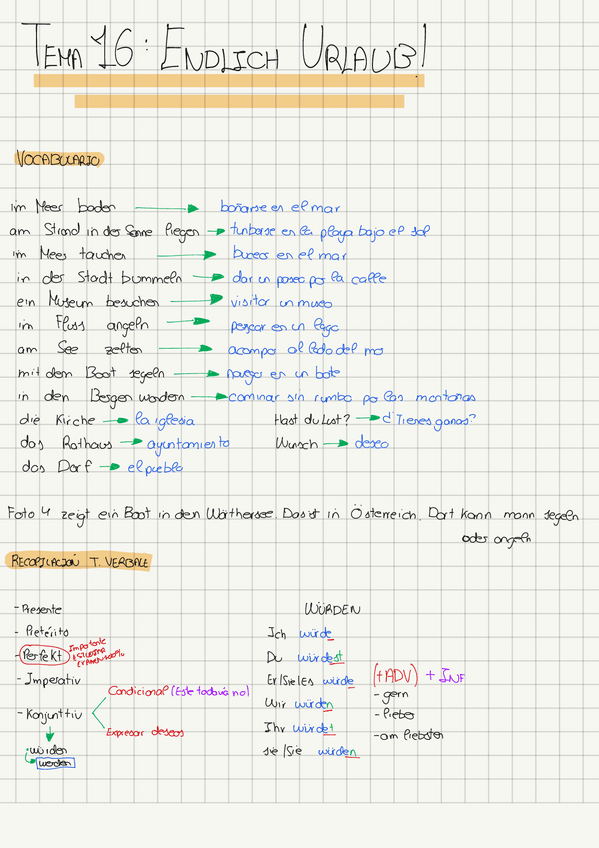 TEMA 16: ENDLICH URLAUB!
VOCABULARIO
im Meer baden → bañarse en el mar
am Strand in der Sonne liegen → tumbarse en la playa bajo el sol
im Meer tauchen → bucear en el mar
in der Stadt bummeln → dar un paseo por la calle
ein Museum besuchen → visitar un museo
im Fluss angeln → pescar en un lago
am See zelten → acampar al lado del mar
mit dem Boot segeln → navegar en un bote
in den Bergen wandern → caminar sin rumbo po las montañas
die Kirche → la iglesia
Hast du Lust? → ¿Tienes ganas?
das Rathaus → ayuntamiento
Wunsch → deseo
das Dorf → el pueblo
Foto 4 zeigt ein Boot in den Wörthersee. Das ist in Österreich. Dort kann mann segeln
oder angeln
RECOPILACIÓN T. VERBALE
- Presente
- Pretérito
- Perfekt
Importante
ESTUDIAR
EXAMEN 100%
- Imperativ
- Konjuntiv
Condicional (Este todavía no)
Expresar deseos
würden
werden
WÜRDEN
Ich würde
Du würdest
Er/Sie/Es würde
Wir würden
Ihr würdet
sie/Sie würden
(+ADV) + INF
- gern
- lieber
- am liebsten